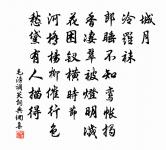 城月
泠羅袜
郎睡不知鸞帳揭
香淒翠被燈明滅
花困釵橫時節
河橋楊柳催行色
愁黛有人描得
毛滂调笑詞